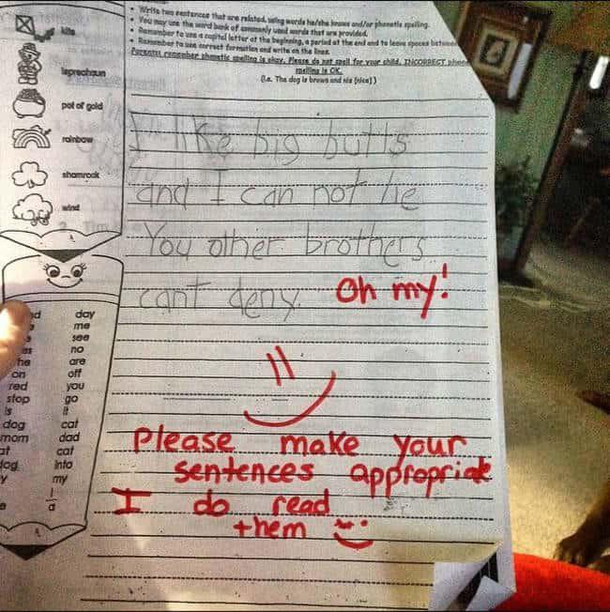 • Write two sentences that are related, using words he/she knows and/or phonetic spelling.
• You may use the word bank of commonly used words that are provided.
• Remember to use a capital letter at the beginning, a period at the end and to leave spaces between
• Remember to use correct formation and write on the lines.
Parents, remember phonetic spelling is okay. Please do not spell for your child. INCORRECT
spelling is OK.
(i.e. The dog is brown and nis [nice].)
kite
leprechaun
pot of gold
rainbow
shamrock
wind
I like big butts
and I can not lie
You other brothers
cant deny.
Oh my!
Please make your
sentences appropriate
I do read
them
day
me
see
no
he are
on off
red you
stop go
is it
dog cat
mom dad
at cat
into
my
I
a